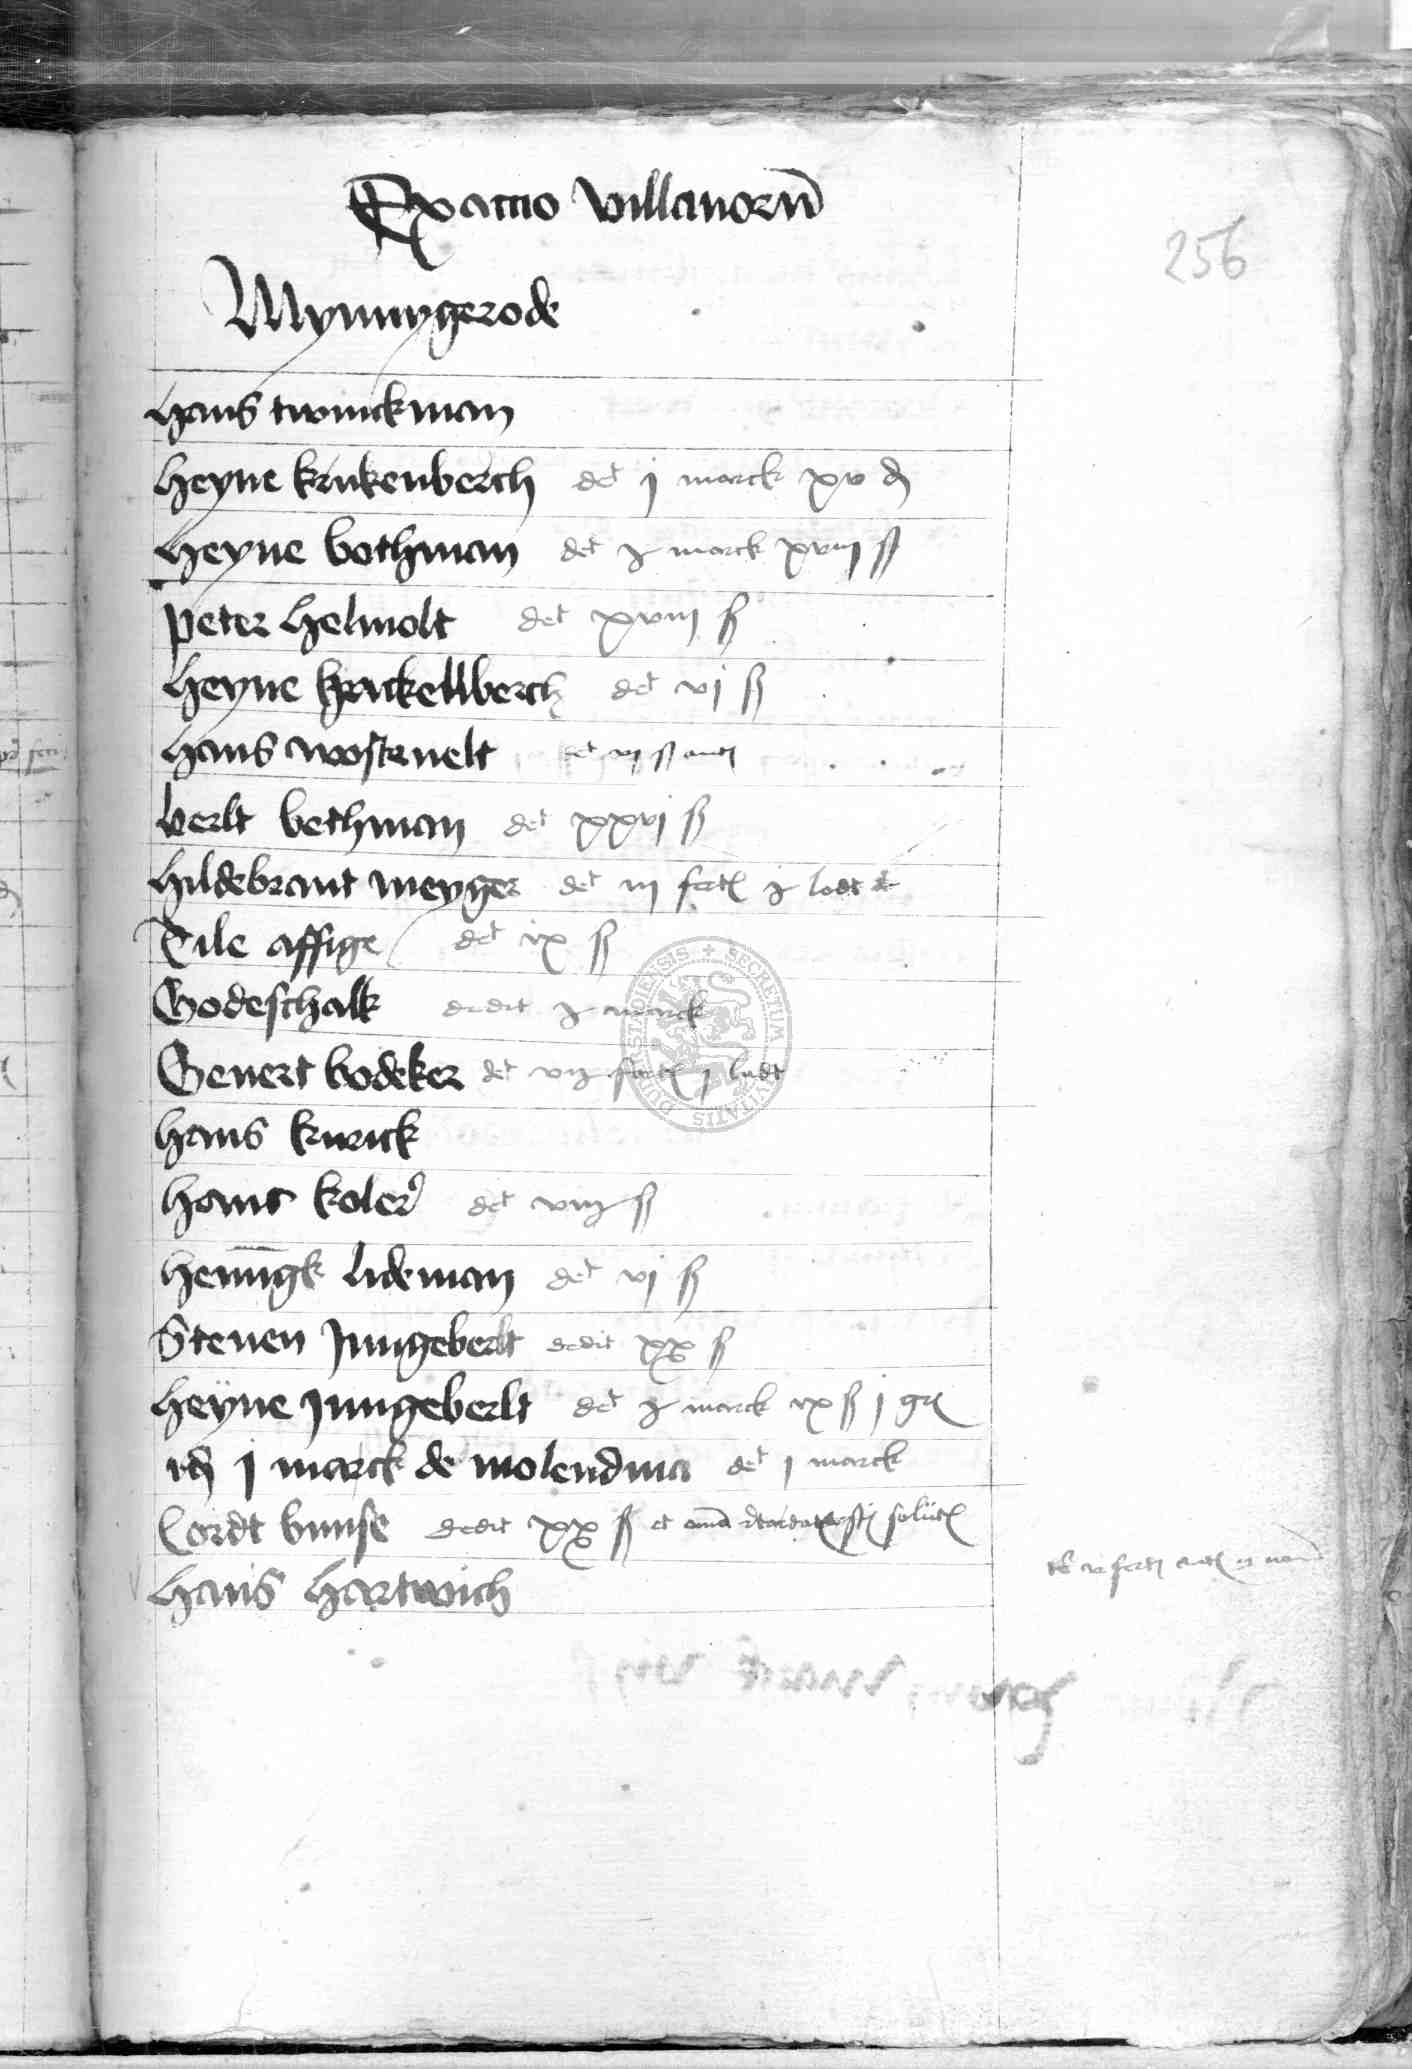 Exactio villanorū
256
Mynnygerode
Hans twinckman
Heyne krukenberch det j marck xv d
Heyne bothman det j marck xviij ß
Peter Helmolt det xviij ß
Heyne hackellberch det vj ß
Hans wostevelt det vj ß
berlt bethman det xxvj ß
Hildebrant meyger det iij fert j lodt
Tile affige det ix ß
Godeschalk dedit j marck
Gevert bodeker det fert j lodt
Hans kunck
Hans koler det viij ß
Hennigk ludeman det vj ß
Steven Jungeberlt dedit xx ß
Heÿne Jungeberlt det marck ix ß j gr
j marck de molendina det j marck
Cordt bunse dedit xx ß et
Hans Hartwich
SECRETUM CIVITATIS DUDERSTADIENSIS